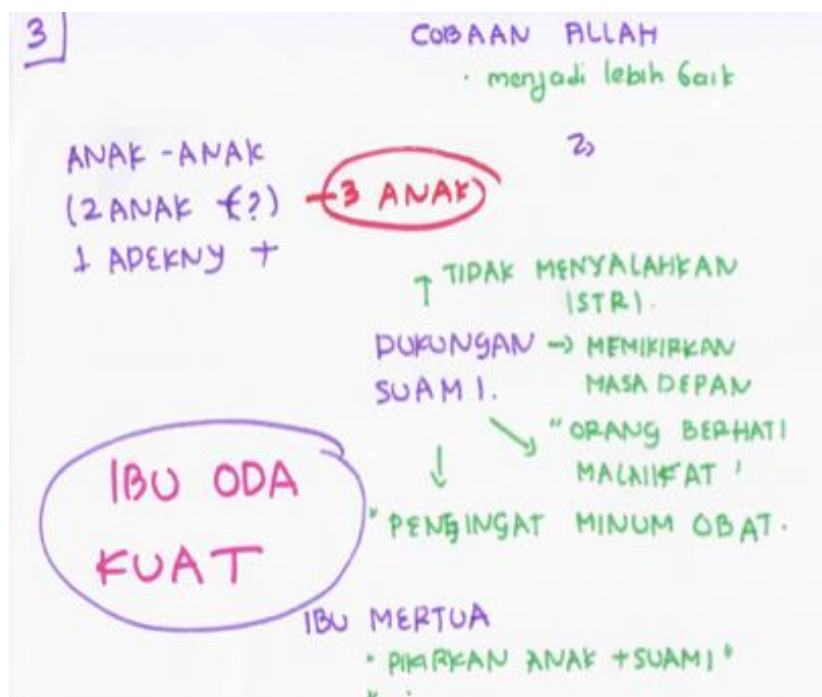 3
COBAAN ALLAH
• menjadi lebih baik
2)
ANAK-ANAK
(2 ANAK (?) → 3 ANAK)
1 ADEKNY +
↑ TIDAK MENYALAHKAN
ISTRI.
DUKUNGAN → MEMIKIRKAN
SUAMI. MASA DEPAN
"ORANG BERHATI
MALAIKAT"
"PENGINGAT MINUM OBAT.
IBU ODA
KUAT
IBU MERTUA
• PIKIRKAN ANAK + SUAMI"